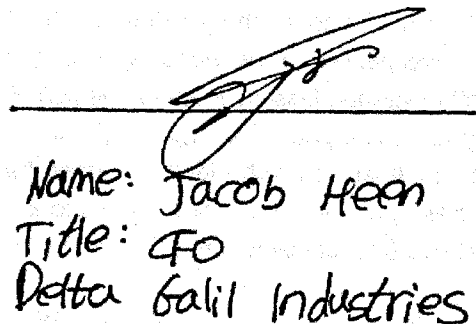 Name: Jacob Heen
Title: CFO
Delta Galil Industries